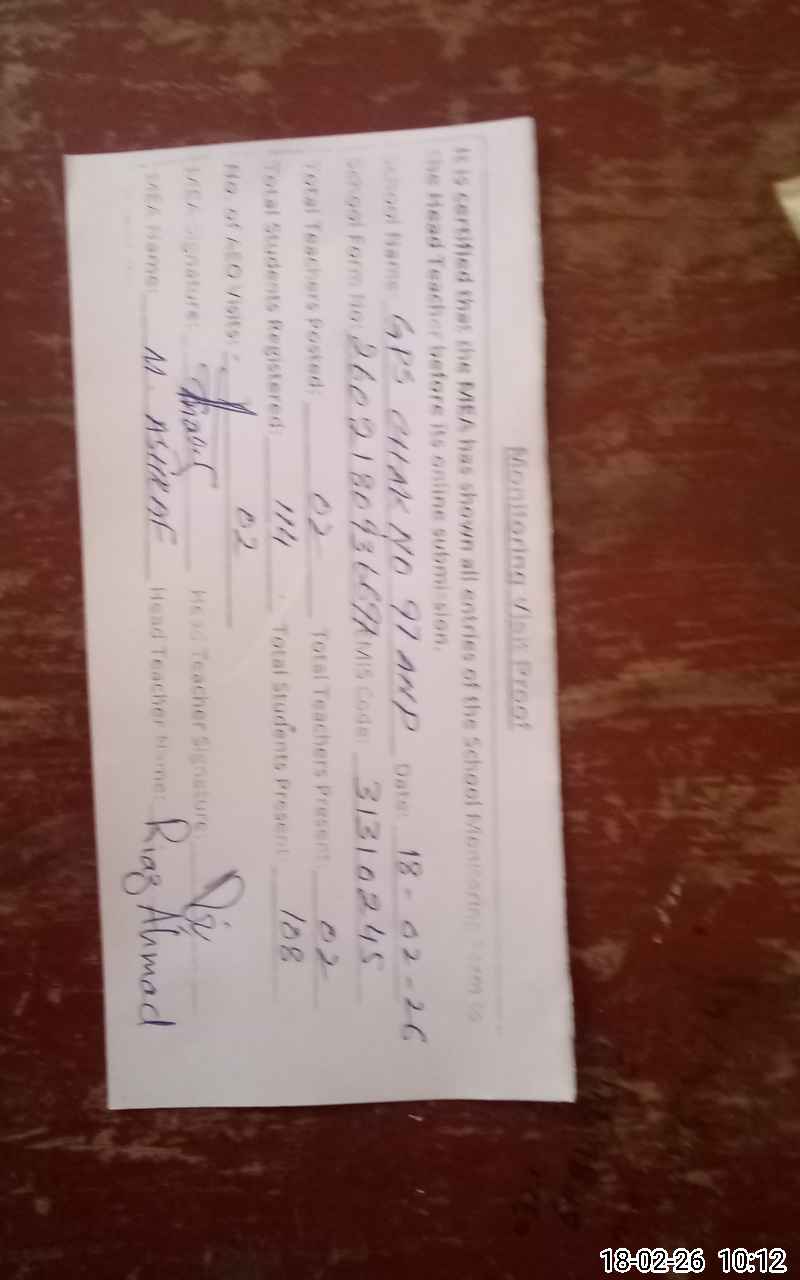 Monitoring Visit Proof
It is certified that the MEA has shown all entries of the School Monitoring Form to
the Head Teacher before its online submission.
School Name: GPS CHAK NO 97 ANP Date: 18-02-26
School Form No: EMIS Code: 31310245
Total Teachers Posted: 02 Total Teachers Present: 02
Total Students Registered: 114 Total Students Present: 108
No. of AEO Visits: 02
MEA Signature: Head Teacher Signature:
MEA Name: M. ASHRAF Head Teacher Name: Riaz Ahmad
18-02-26 10:12